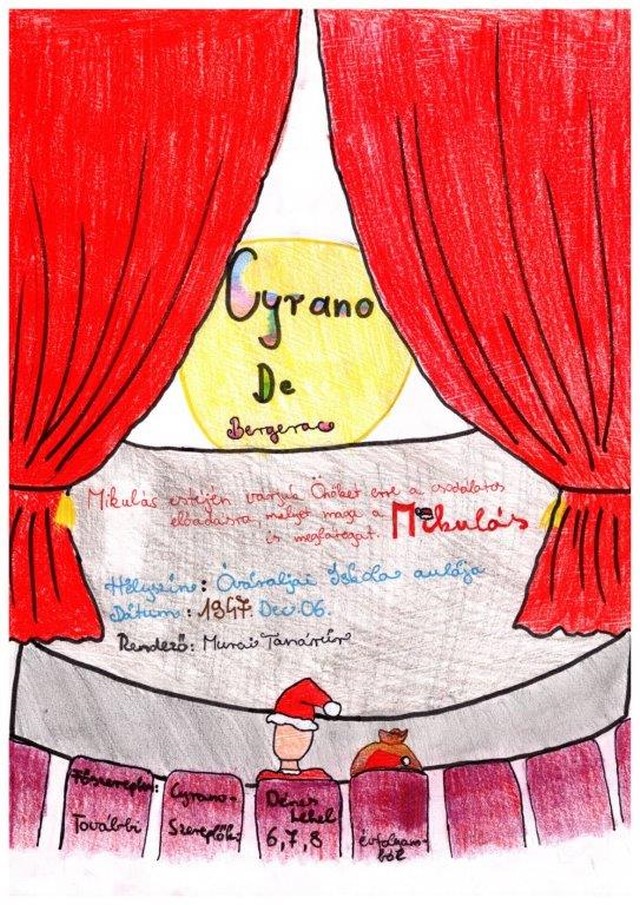 Cyrano
De
Bergerac
Mikulás estéjén várjuk Önöket erre a csodálatos
előadásra, melyet maga a Mikulás
is meglátogat.
Helyszín: Óváraljai Iskola aulája
Dátum: 1947. Dec. 06.
Rendező: Murai Tanárúr
Főszereplő: Cyrano- Dénes Lehel
További Szereplők 6,7,8 évfolyam-
ból